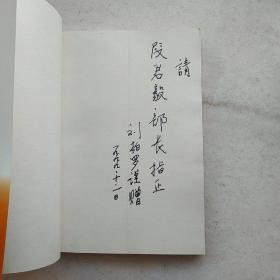 請
段君毅部长指正
刘柏罗谨赠
一九九九·十二·日